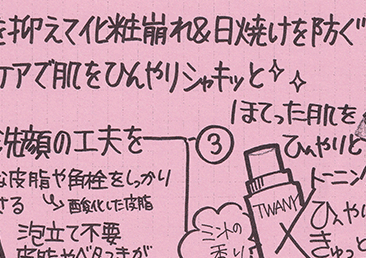 を抑えて化粧崩れ&日焼けを防ぐ
ケアで肌をひんやりシャキッと
洗顔の工夫を
③
ほてった肌を
ひんやりと
な皮脂や角栓をしっかり
さる
酸化した皮脂
泡立て不要
皮脂やベタつきが
ミントの
香り
TWANY
トーニン
ひんやり
きゅっと